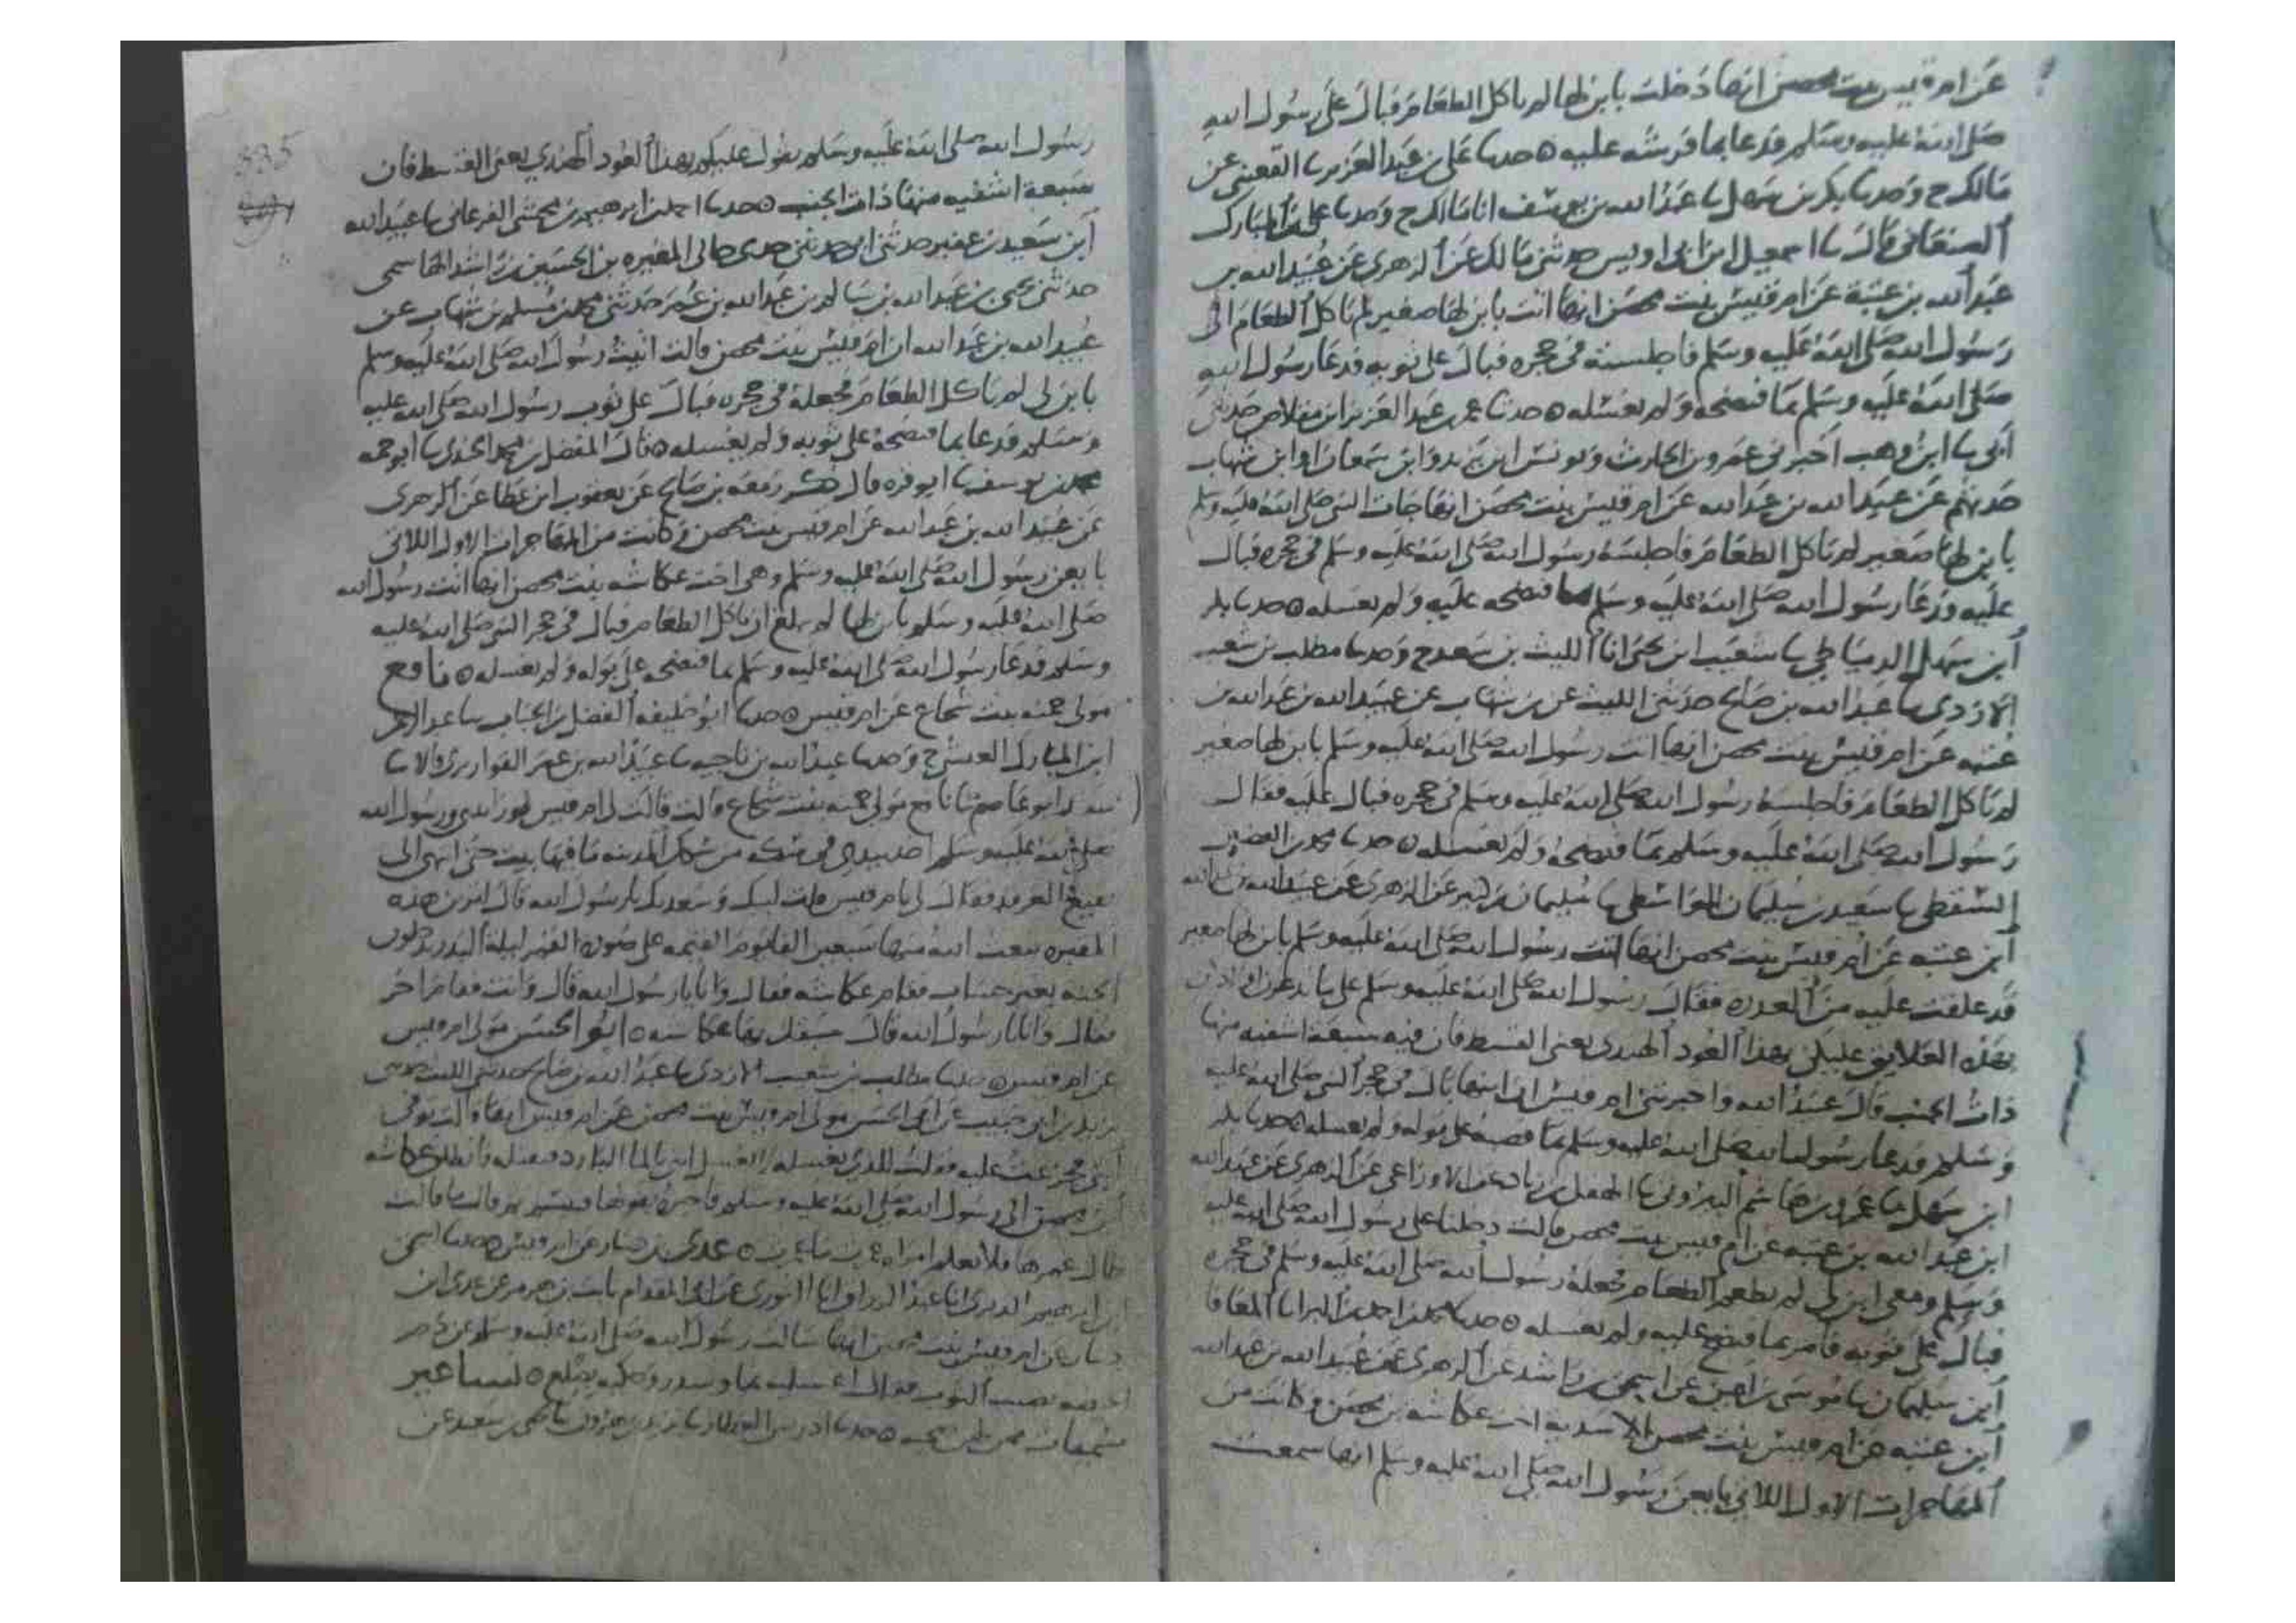 عن ام قيس بنت محصن انها دخلت بابن لها لم ياكل الطعام فبال على رسول الله
صلى الله عليه وسلم فدعا بما فرشه عليه ه حدثنا علي بن عبد العزيز نا القعنبي عن
مالك ح وحدثنا بكر بن سهل نا عبد الله بن يوسف انا مالك ح وحدثنا علي بن المبارك
الصنعاني قال نا اسمعيل ابن ابي اويس حدثني مالك عن الزهري عن عبيد الله بن
عبد الله بن عتبة عن ام قيس بنت محصن انها اتت بابن لها صغير لم ياكل الطعام الى
رسول الله صلى الله عليه وسلم فاجلسته في حجره فبال على ثوبه فدعا رسول الله
صلى الله عليه وسلم بما فنضحه ولم يغسله ه حدثنا عمر بن عبد العزيز ابن مقلاص حدثني
ابي نا ابن وهب اخبرني عمرو بن الحارث ويونس ابن يزيد وابن سمعان او ابن شهاب
حدثهم عن عبيد الله بن عبد الله عن ام قيس بنت محصن انها جات النبي صلى الله عليه وسلم
بابن لها صغير لم ياكل الطعام فاجلسه رسول الله صلى الله عليه وسلم في حجره فبال
عليه ودعا رسول الله صلى الله عليه وسلم بما فنضحه عليه ولم يغسله ه حدثنا بكر
ابن سهل الدمياطي نا شعيب ابن يحيى انا الليث بن سعد ح وحدثنا مطلب بن شعيب
الازدي نا عبد الله بن صالح حدثني الليث عن بن شهاب عن عبيد الله بن عبد الله بن
عتبه عن ام قيس بنت محصن انها اتت رسول الله صلى الله عليه وسلم بابن لها صغير
لم ياكل الطعام فاجلسه رسول الله صلى الله عليه وسلم في حجره فبال عليه فقال
رسول الله صلى الله عليه وسلم بما فنضحه ولم يغسله ه حدثنا محمد بن الفضل
السقطي نا سعيد بن سليمان الواسطي نا سليمان بن كثير عن الزهري عن عبيد الله بن عبد الله
ابن عتبه عن ام قيس بنت محصن انها اتت رسول الله صلى الله عليه وسلم بابن لها صغير
قد علقت عليه من العذره فقال رسول الله صلى الله عليه وسلم على ما تدغرن اولادكن
بهذه العلايق عليكن بهذا العود الهندي يعني القسط فان فيه سبعة اشفيه منها
ذات الجنب قال عبيد الله واخبرتني ام قيس ان ابنها بال في حجر النبي صلى الله عليه
وسلم فدعا رسول الله صلى الله عليه وسلم بما فصبه على بوله ولم يغسله ه حدثنا بكر
ابن سهل نا عمرو بن هاشم البيروتي نا الهقل بن زياد عن الاوزاعي عن الزهري عن عبيد الله
ابن عبد الله بن عتبه عن ام قيس بنت محصن قالت دخلنا على رسول الله صلى الله عليه
وسلم ومعي ابن لي لم يطعم الطعام فجعله رسول الله صلى الله عليه وسلم في حجره
فبال على ثوبه فامر بما فنضح عليه ولم يغسله ه حدثنا محمد بن احمد بن البرا نا المعافا
ابن سليمان نا موسى بن اعين عن اسحق بن راشد عن الزهري عن عبيد الله بن عبد الله
ابن عتبه عن ام قيس بنت محصن الاسديه اخت عكاشه بن محصن وكانت من
المهاجرات الاول اللاتي بايعن رسول الله صلى الله عليه وسلم انها سمعت
535
رسول الله صلى الله عليه وسلم يقول عليكم بهذا العود الهندي يعني القسط فان
سبعة اشفيه منها ذات الجنب ه حدثنا احمد بن ابرهيم بن محشي الفرغاني نا عبيد الله
ابن سعيد بن عفير حدثني ابي حدثني جدي خالي المغيره بن الحسين بن راشد الهاشمي
حدثني يحيى بن عبد الله بن سالم بن عبد الله بن عمر حدثني محمد بن مسلم بن شهاب عن
عبيد الله بن عبد الله ان ام قيس بنت محصن قالت اتيت رسول الله صلى الله عليه وسلم
بابن لي لم ياكل الطعام فجعله في حجره فبال على ثوب رسول الله صلى الله عليه
وسلم فدعا بما فنضحه على ثوبه ولم يغسله ه قال المفضل بن محمد الجندي نا ابو حمه
محمد بن يوسف نا ابو قره قال ذكر زمعه بن صالح عن يعقوب ابن عطا عن الزهري
عن عبيد الله بن عبد الله عن ام قيس بنت محصن وكانت من المهاجرات الاول اللاتي
بايعن رسول الله صلى الله عليه وسلم وهي اخت عكاشه بنت محصن انها اتت رسول الله
صلى الله عليه وسلم بابن لها لم يبلغ ان ياكل الطعام فبال في حجر النبي صلى الله عليه
وسلم فدعا رسول الله صلى الله عليه وسلم بما فنضحه على بوله ولم يغسله ه نافع
مولى حمنه بنت شجاع عن ام قيس ه حدثنا ابو خليفه الفضل بن الحباب نا عبد الرحمن
ابن المبارك العيشي ح وحدثنا عبد الله بن ناجيه نا عبيد الله بن عمر القواريري قالا نا
سعد ابو عاصم نا نافع مولى حمنه بنت شجاع قالت قالت لي ام قيس لو رايتني ورسول الله
صلى الله عليه وسلم اخذ بيدي في سكه من سكك المدينه ما فيها بيت حتى انتهى الى
بقيع الغرقد فقال لي يا ام قيس قلت لبيك وسعديك يا رسول الله قال اترين هذه
المقبره يبعث الله منها سبعين الفا يوم القيمه على صورة القمر ليلة البدر يدخلون
الجنه بغير حساب فقام عكاشه فقال وانا يا رسول الله قال وانت فقام اخر
فقال وانا يا رسول الله قال سبقك بها عكاشه ه ابو الحسن مولى ام قيس
عن ام قيس ه حدثنا مطلب بن شعيب الازدي نا عبد الله بن صالح حدثني الليث حدثني
يزيد بن ابي حبيب عن ابي الحسن مولى ام قيس بنت محصن عن ام قيس انها قالت توفي
ابني فجزعت عليه فقلت للذي يغسله لا تغسل ابني بالما البارد فتقتله فانطلق عكاشه
ابن محصن الى رسول الله صلى الله عليه وسلم فاخبره بقولها فتبسم ثم قال ما قالت
طال عمرها فلا نعلم امراه عمرت ما عمرت ه عدي بن دينار عن ام قيس ه حدثنا اسحق
ابن ابرهيم الدبري انا عبد الرزاق انا الثوري عن ابي المقدام ثابت بن هرمز عن عدي ابن
دينار عن ام قيس بنت محصن انها سالت رسول الله صلى الله عليه وسلم عن دم
الحيضه يصيب الثوب فقال اغسليه بما وسدر وحكيه بضلع ه
حدثنا ادريس العطار نا يزيد بن هرون نا يحيى بن سعيد عن